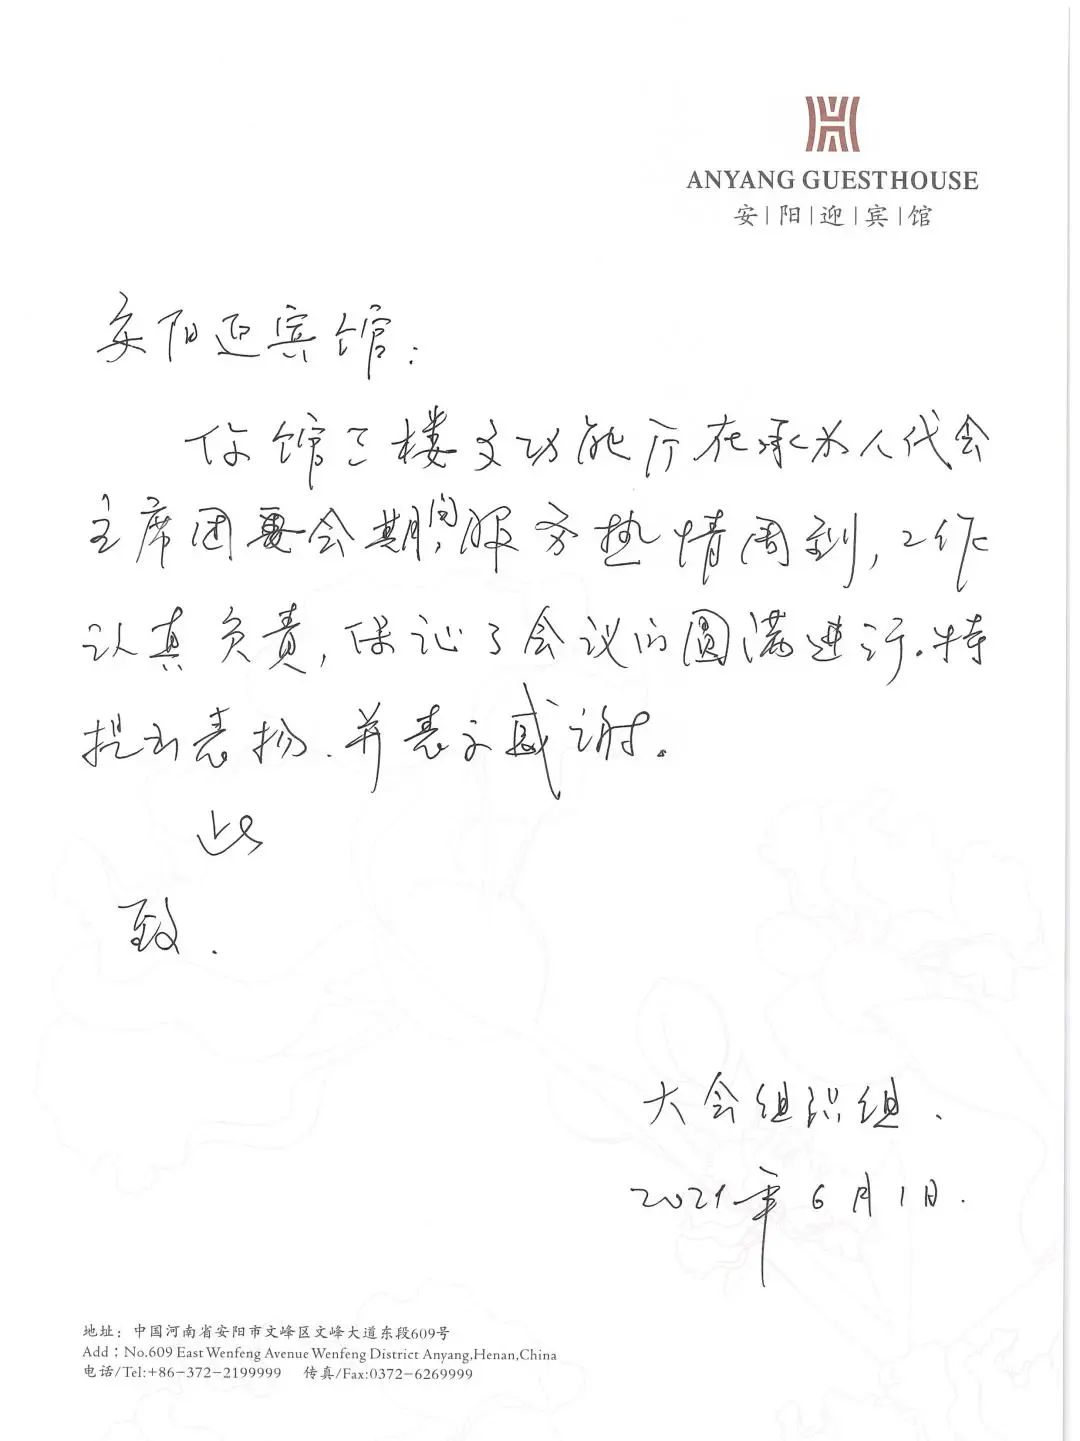 ANYANG GUESTHOUSE
安|阳|迎|宾|馆
安阳迎宾馆:
你馆三楼多功能厅在承办人代会
主席团要会期间服务热情周到,工作
认真负责,保证了会议的圆满进行.特
提出表扬.并表示感谢。
此
致.
大会组织组.
2021年6月1日.
地址：中国河南省安阳市文峰区文峰大道东段609号
Add：No.609 East Wenfeng Avenue Wenfeng District Anyang,Henan,China
电话/Tel:+86-372-2199999 传真/Fax:0372-6269999